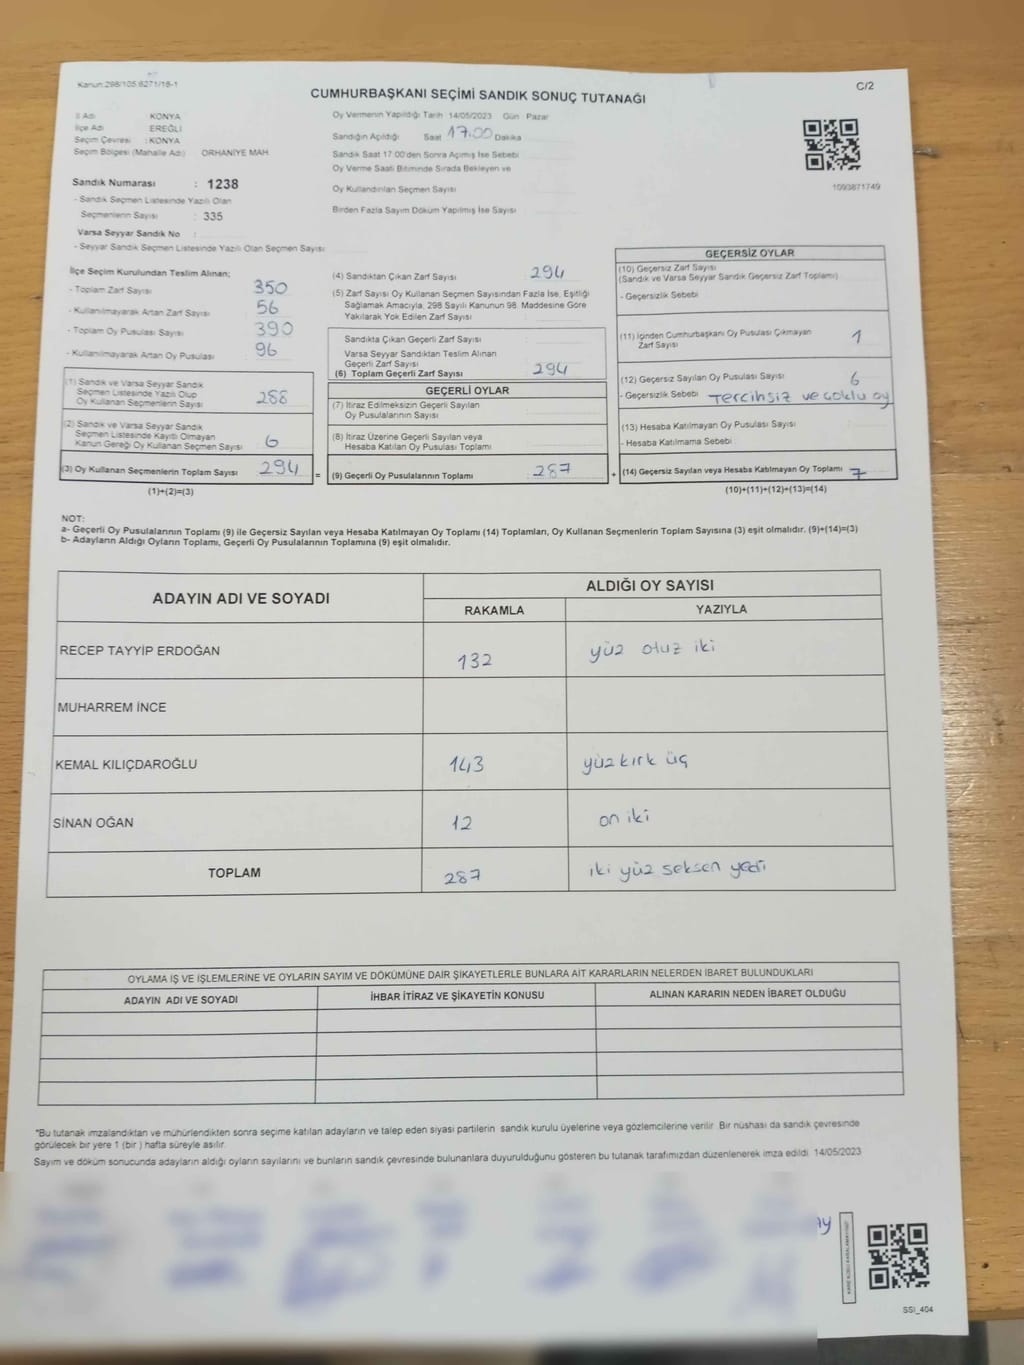 Kanun:298/105.6271/18-1
C/2
CUMHURBAŞKANI SEÇİMİ SANDIK SONUÇ TUTANAĞI
İl Adı : KONYA
İlçe Adı : EREĞLİ
Seçim Çevresi : KONYA
Seçim Bölgesi (Mahalle Adı) : ORHANİYE MAH
Sandık Numarası : 1238
- Sandık Seçmen Listesinde Yazılı Olan
Seçmenlerin Sayısı : 335
Varsa Seyyar Sandık No :
- Seyyar Sandık Seçmen Listesinde Yazılı Olan Seçmen Sayısı :
Oy Vermenin Yapıldığı Tarih 14/05/2023 Gün Pazar
Sandığın Açıldığı Saat 17.00 Dakika
Sandık Saat 17.00'den Sonra Açılmış İse Sebebi
Oy Verme Saati Bitiminde Sırada Bekleyen ve
Oy Kullandırılan Seçmen Sayısı
Birden Fazla Sayım Döküm Yapılmış İse Sayısı
1093871749
İlçe Seçim Kurulundan Teslim Alınan;
- Toplam Zarf Sayısı 350
- Kullanılmayarak Artan Zarf Sayısı 56
- Toplam Oy Pusulası Sayısı 390
- Kullanılmayarak Artan Oy Pusulası 96
(1) Sandık ve Varsa Seyyar Sandık
Seçmen Listesinde Yazılı Olup
Oy Kullanan Seçmenlerin Sayısı 288
(2) Sandık ve Varsa Seyyar Sandık
Seçmen Listesinde Kayıtlı Olmayan
Kanun Gereği Oy Kullanan Seçmen Sayısı 6
(3) Oy Kullanan Seçmenlerin Toplam Sayısı 294 =
(1)+(2)=(3)
(4) Sandıktan Çıkan Zarf Sayısı 294
(5) Zarf Sayısı Oy Kullanan Seçmen Sayısından Fazla İse, Eşitliği
Sağlamak Amacıyla, 298 Sayılı Kanunun 98. Maddesine Göre
Yakılarak Yok Edilen Zarf Sayısı
Sandıkta Çıkan Geçerli Zarf Sayısı
Varsa Seyyar Sandıktan Teslim Alınan
Geçerli Zarf Sayısı
(6) Toplam Geçerli Zarf Sayısı 294
GEÇERLİ OYLAR
(7) İtiraz Edilmeksizin Geçerli Sayılan
Oy Pusulalarının Sayısı
(8) İtiraz Üzerine Geçerli Sayılan veya
Hesaba Katılan Oy Pusulaları Toplamı
(9) Geçerli Oy Pusulalarının Toplamı 287 +
GEÇERSİZ OYLAR
(10) Geçersiz Zarf Sayısı
(Sandık ve Varsa Seyyar Sandık Geçersiz Zarf Toplamı)
- Geçersizlik Sebebi
(11) İçinden Cumhurbaşkanı Oy Pusulası Çıkmayan
Zarf Sayısı 1
(12) Geçersiz Sayılan Oy Pusulası Sayısı 6
- Geçersizlik Sebebi Tercihsiz ve çoklu oy
(13) Hesaba Katılmayan Oy Pusulası Sayısı
- Hesaba Katılmama Sebebi
(14) Geçersiz Sayılan veya Hesaba Katılmayan Oy Toplamı 7
(10)+(11)+(12)+(13)=(14)
NOT:
a- Geçerli Oy Pusulalarının Toplamı (9) ile Geçersiz Sayılan veya Hesaba Katılmayan Oy Toplamı (14) Toplamları, Oy Kullanan Seçmenlerin Toplam Sayısına (3) eşit olmalıdır. (9)+(14)=(3)
b- Adayların Aldığı Oyların Toplamı, Geçerli Oy Pusulalarının Toplamına (9) eşit olmalıdır.
ADAYIN ADI VE SOYADI
ALDIĞI OY SAYISI
RAKAMLA YAZIYLA
RECEP TAYYİP ERDOĞAN 132 yüz otuz iki
MUHARREM İNCE
KEMAL KILIÇDAROĞLU 143 yüz kırk üç
SİNAN OĞAN 12 on iki
TOPLAM 287 iki yüz seksen yedi
OYLAMA İŞ VE İŞLEMLERİNE VE OYLARIN SAYIM VE DÖKÜMÜNE DAİR ŞİKAYETLERLE BUNLARA AİT KARARLARIN NELERDEN İBARET BULUNDUKLARI
ADAYIN ADI VE SOYADI İHBAR İTİRAZ VE ŞİKAYETİN KONUSU ALINAN KARARIN NEDEN İBARET OLDUĞU
"Bu tutanak imzalandıktan ve mühürlendikten sonra seçime katılan adayların ve talep eden siyasi partilerin sandık kurulu üyelerine veya gözlemcilerine verilir. Bir nüshası da sandık çevresinde
görülecek bir yere 1 (bir ) hafta süreyle asılır.
Sayım ve döküm sonucunda adayların aldığı oyların sayılarını ve bunların sandık çevresinde bulunanlara duyurulduğunu gösteren bu tutanak tarafımızdan düzenlenerek imza edildi. 14/05/2023
SSI_404